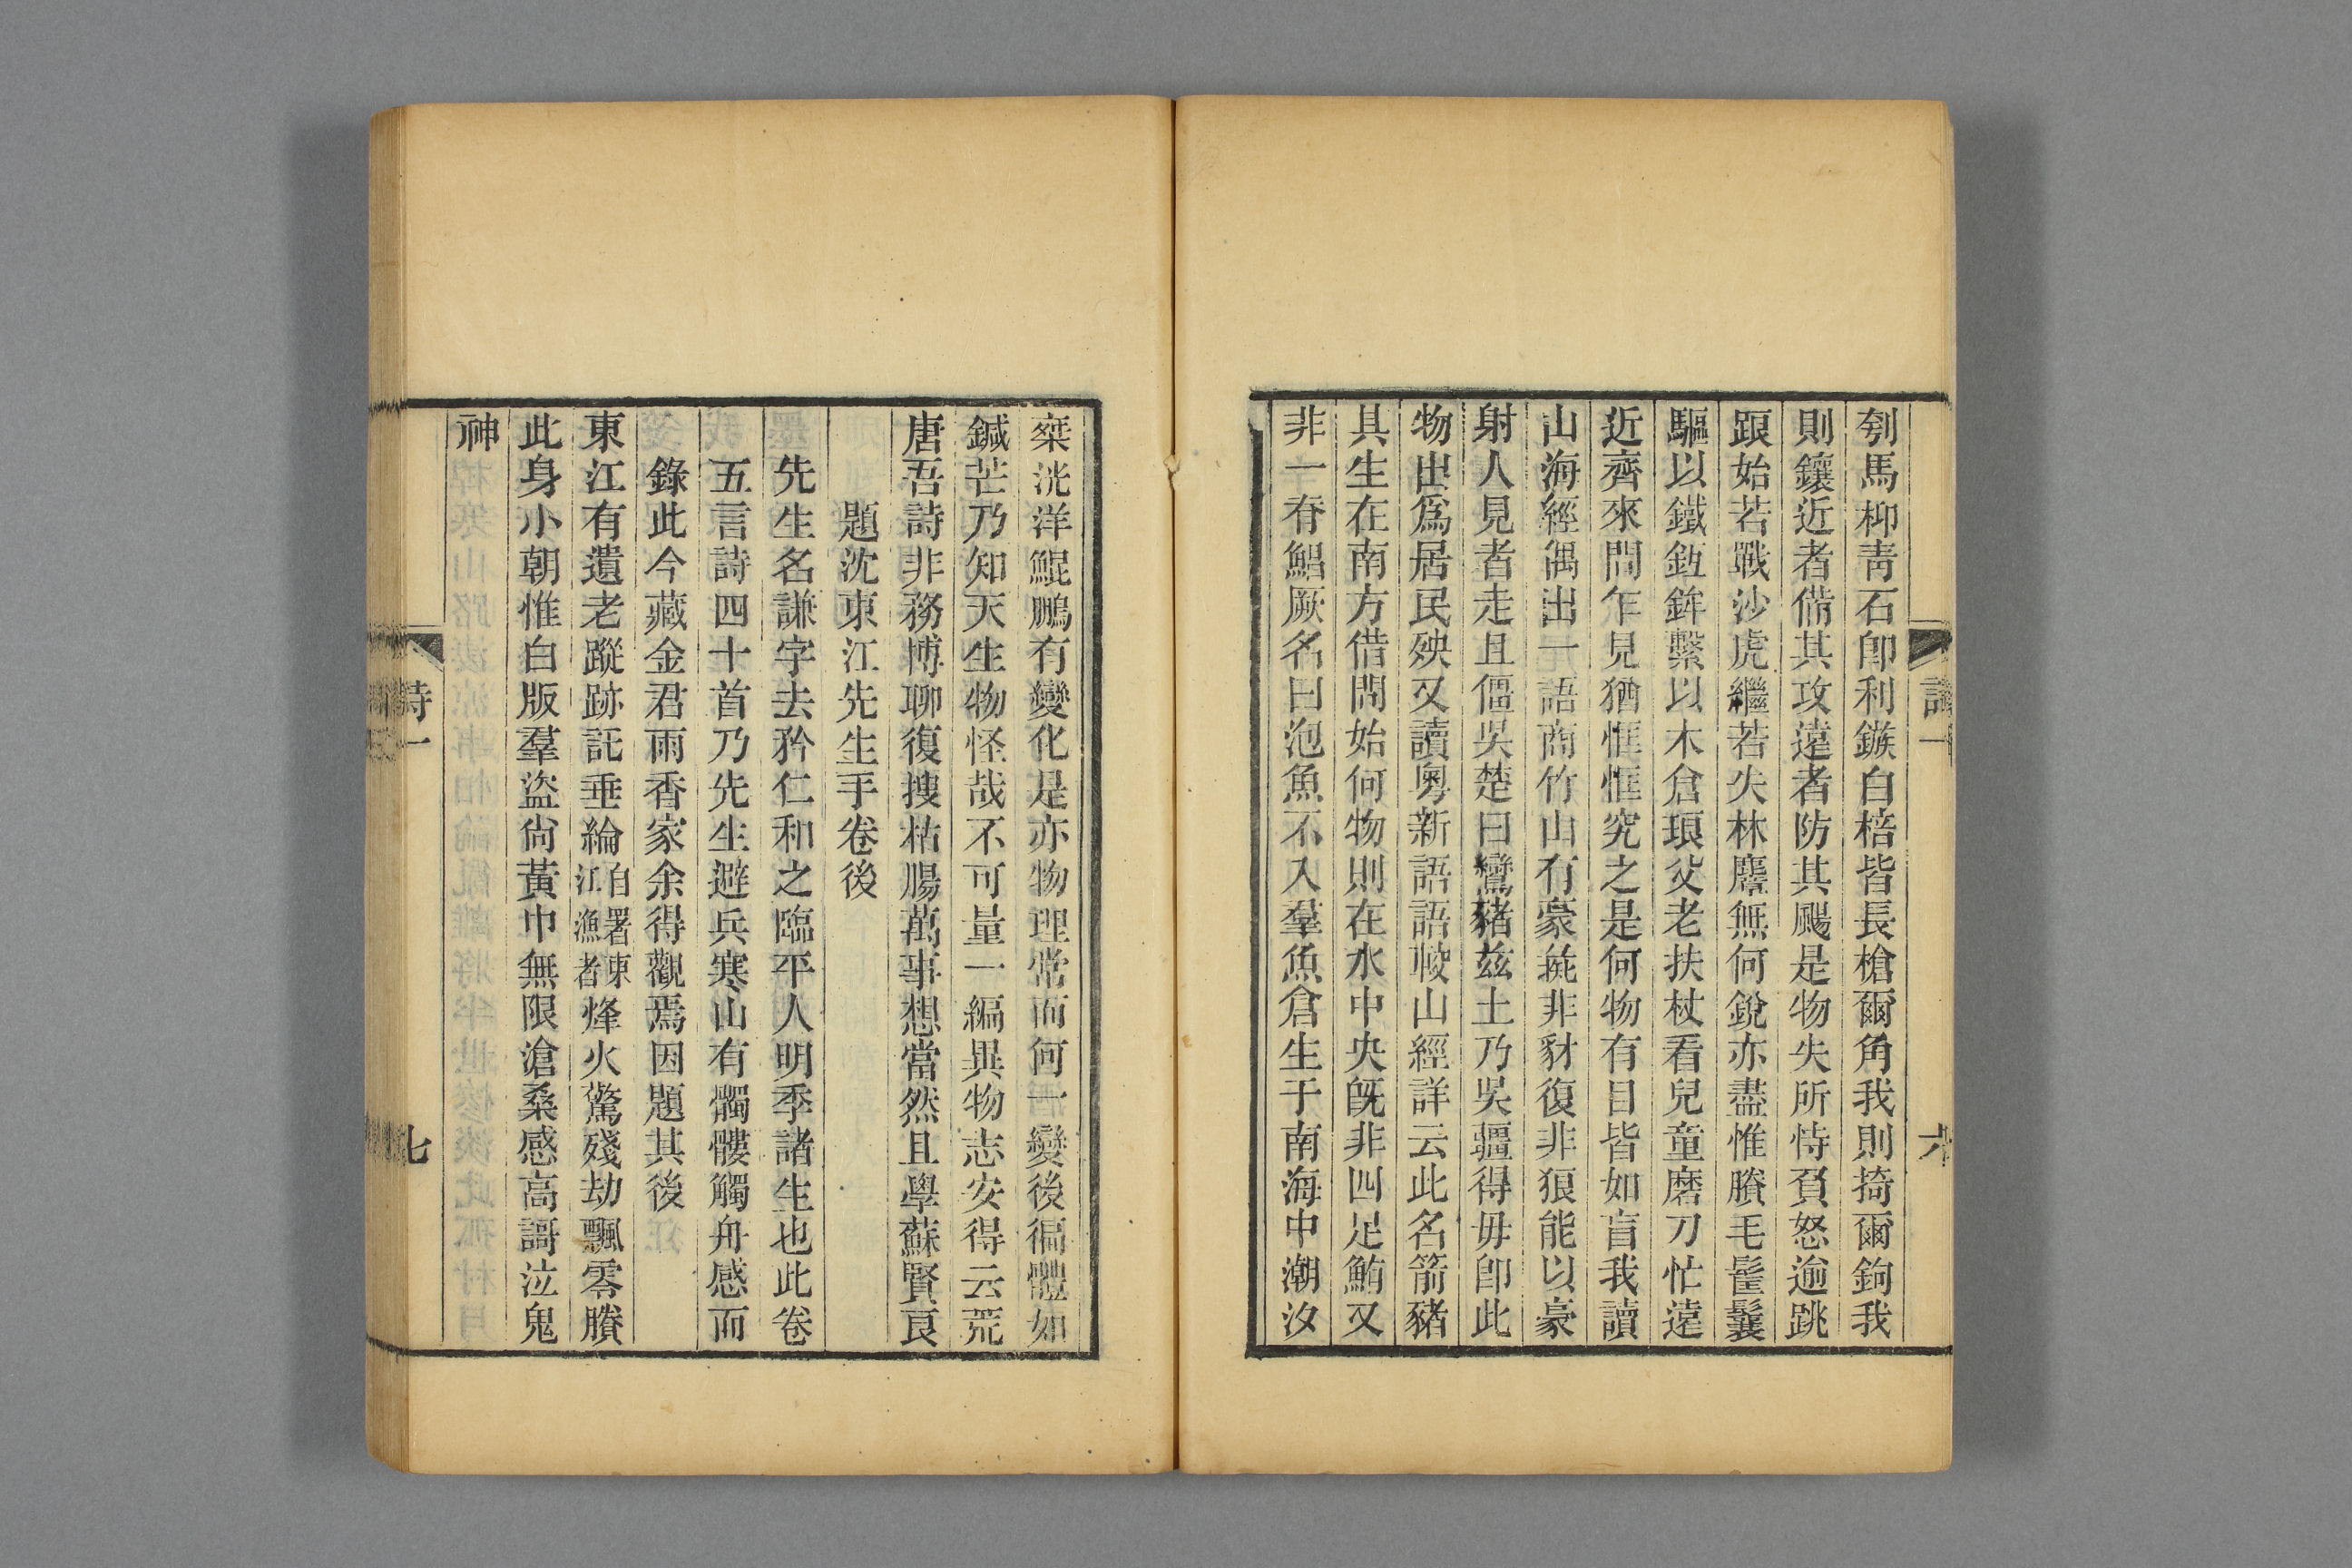 詩一
六
刳馬柳靑石卽利鏃自棓皆長槍爾角我則掎爾鉤我
則鑲近者備其攻遠者防其颺是物失所恃負怒逾跳
踉始若戰沙虎繼若失林麏無何銳亦盡惟賸毛髶鬟
驅以鐵鉅鉾繫以木倉琅父老扶杖看兒童磨刀忙遠
近齊來問乍見猶恇恇究之是何物有目皆如盲我讀
山海經偶出一語商竹山有豪彘非豺復非狼能以豪
射人見者走且僵吳楚曰鸞豬茲土乃吳疆得毋卽此
物出爲居民殃又讀粵新語語較山經詳云此名箭豬
具生在南方借問始何物則在水中央旣非四足鮪又
非一脊鯧厥名曰泡魚不入羣魚倉生于南海中潮汐
桀洸洋鯤鵬有變化是亦物理常而何一變後徧體如
鍼芒乃知天生物怪哉不可量一編異物志安得云荒
唐吾詩非務博聊復搜枯腸萬事想當然且學蘇賢良
題沈東江先生手卷後
先生名謙字去矜仁和之臨平人明季諸生也此卷
五言詩四十首乃先生避兵寒山有髑髏觸舟感而
錄此今藏金君雨香家余得觀焉因題其後
東江有遺老蹤跡託垂綸自署東江漁者烽火驚殘劫飄零賸
此身小朝惟白版羣盜尙黃巾無限滄桑感高謌泣鬼
神
詩一
七